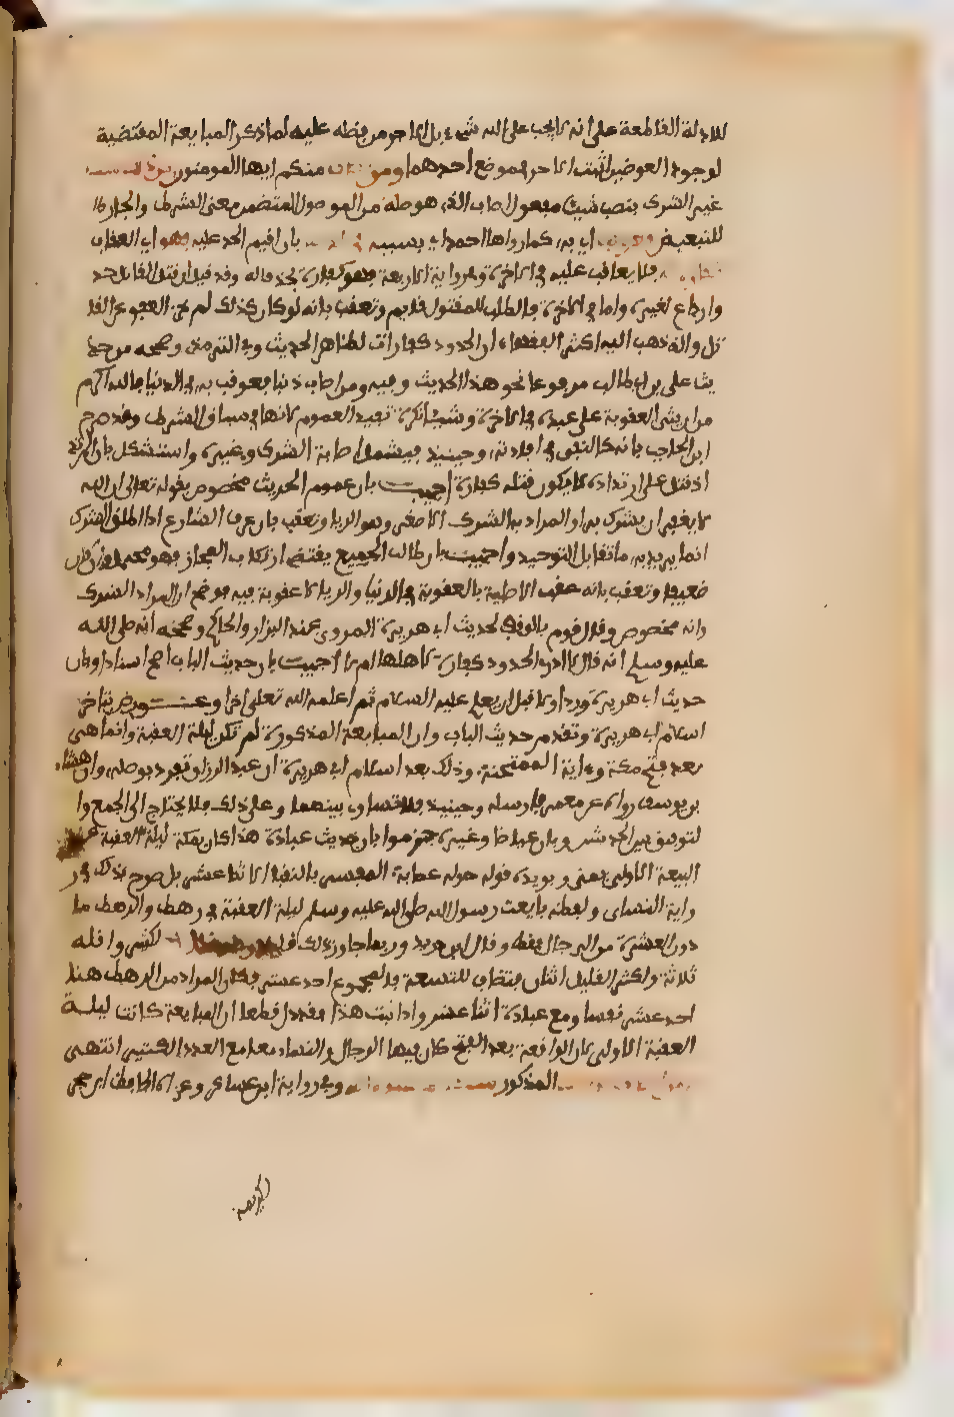 للادلة القاطعة على انه لا يجب على الله شيء بل الاجر من فضله عليه لما ذكر المبايعة المقتضية
لوجود العوضين اثبت الاجر في موضع احدهما ومن اصاب منكم ايها المومنون من ذلك شيئا
غير الشرك بنصب شيئا مفعول اصاب الذي هو صلة من الموصول المتضمن معنى الشرط والجار
للتبعيض فعوقب اي به كما رواها احمد اي بسببه في الدنيا بان اقيم الحد عليه فهو اي العقاب
فلا يعاقب عليه في الاخرة وفي رواية الاربعة فهو كفارة له وقد قيل ان قتل القاتل حد
وارداع لغيره واما في الاخرة فالطلب للمقتول قايم وتعقب بانه لو كان كذلك لم يجز العفو عن القا
تل والذي ذهب اليه اكثر الفقهاء ان الحدود كفارات لظاهر الحديث وفي الترمذي وصححه من حد
يث علي بن ابي طالب مرفوعا نحو هذا الحديث وفيه ومن اصاب ذنبا فعوقب به في الدنيا فالله اكرم
من ان يثني العقوبة على عبده في الاخرة وشيئا نكرة تفيد العموم لانها في سياق الشرط وقد صرح
ابن الحاجب بانه كالنفي في افادته وحينئذ فيشمل اصابة الشرك وغيره واستشكل بان المرتد
اذا قتل على ارتداده لا يكون قتله كفارة اجيب بان عموم الحديث مخصوص بقوله تعالى ان الله
لا يغفر ان يشرك به او المراد به الشرك الاصغر وهو الريا وتعقب بان عرف الشارع اذا اطلق الشرك
انما يريد به ما تقابل التوحيد واجيب بان طلب الجميع يقتضي ارتكاب المجاز فهو محتمل وان كان
ضعيفا وتعقب بانه عقب الاصابة بالعقوبة في الدنيا والريا لا عقوبة فيه فوضح ان المراد الشرك
وانه مخصوص وقال قوم بالوقف لحديث ابي هريرة المروي عند البزار والحاكم وصححه انه صلى الله
عليه وسلم انه قال لا ادري الحدود كفارة لاهلها ام لا اجيب بان حديث الباب اصح اسنادا وبان
حديث ابي هريرة ورد اولا قبل ان يعلم عليه السلام ثم اعلمه الله تعلى اخرا وعورض بتاخر
اسلام ابي هريرة وتقدم حديث الباب وان المبايعة المذكورة لم تكن ليلة العقبة وانما هي
بعد فتح مكة وءاية الممتحنة وذلك بعد اسلام ابي هريرة ان عبد الرزاق تفرد بوصله وان هشام
بن يوسف رواه عن معمر فارسله وحينئذ فلا تساوي بينهما وعلى ذلك فلا يحتاج الى الجمع وا
لتوفيق بين الحديثين وبان عياضا وغيره جزموا بان حديث عبادة هذا كان بمكة ليلة العقبة عند
البيعة الاولى بمنى ويويده قوله حوله عصابة المفسر بالنقباء الاثنا عشر بل صرح بذلك في ر
واية النساءي ولفظه بايعت رسول الله صلى الله عليه وسلم ليلة العقبة في رهط والرهط ما
دون العشرة من الرجال فقط وقال ابن دريد وربما جاوز ذلك لكثير واقله
ثلاثة ولكثر القليل اثنان يضاف للتسعة فالمجموع احد عشر فكان المراد من الرهط هنا
احد عشر نفسا ومع عبادة اثنا عشر واذا ثبت هذا فقد دل قطعا ان المبايعة كانت ليلة
العقبة الاولى لان الواقعة بعد الفتح كان فيها الرجال والنساء معا مع العدد الكثير انتهى
المذكور وفي رواية ابن عساكر وعزاه الحافظ ابن حجر